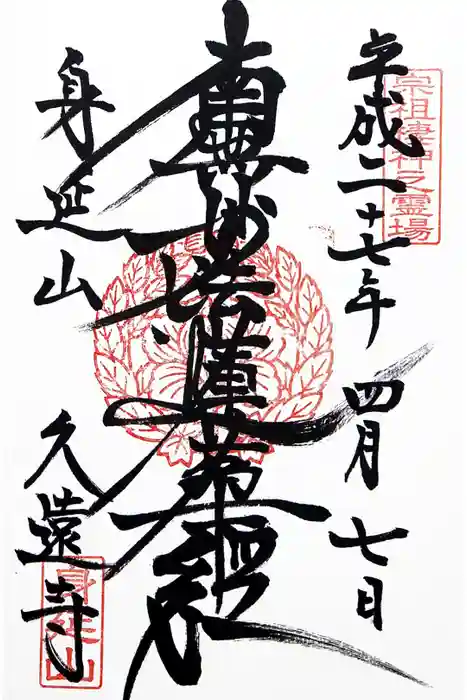 宗祖棲神之霊場
平成二十七年 四月 七日
南無妙法蓮華経
身延山 久遠寺
身延山